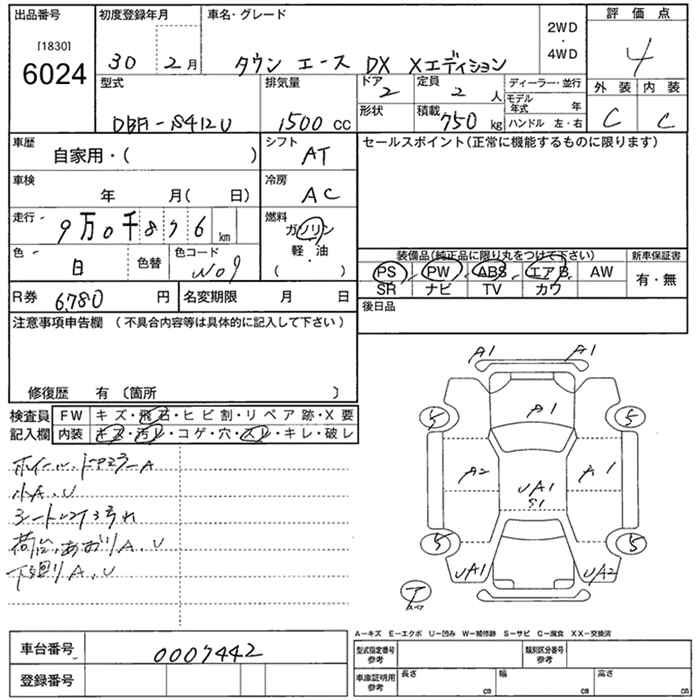 出品番号 初度登録年月 車名・グレード 2WD・4WD 評価点
[1830] 6024
30 2月 タウンエース DX Xエディション 4
型式 排気量 ドア 2 定員 2人 ディーラー・並行 外装 内装
DBF-S412U 1500cc 形状 積載 750kg モデル年式 年 C C
ハンドル 左・右
車歴 自家用・( ) シフト AT セールスポイント(正常に機能するものに限ります)
車検 年 月( 日) 冷房 AC
走行 9万0千876km 燃料 ガソリン・軽油・( )
色 白 色替 色コード W09 装備品(純正品に限り丸をつけて下さい) 新車保証書
PS PW ABS エアB AW 有・無
SR ナビ TV カワ
R券 6,780円 名変期限 月 日 後日品
注意事項申告欄 (不具合内容等は具体的に記入して下さい)
修復歴 有〔箇所 〕
検査員記入欄 FW キズ・飛石・ヒビ割・リペア跡・X要
内装 キズ・汚レ・コゲ・穴・スレ・キレ・破レ
小A.U
荷台、あおりA、U
下廻りA、U
A1 A1
A1
5 5
A2 A1
UA1
S1
5 5
UA1 UA2
T
スペア
A−キズ E−エクボ U−凹み W−補修跡 S−サビ C−腐食 XX−交換済
車台番号 0007442 型式指定番号 参考 類別区分番号 参考
登録番号 車庫証明用 参考 長さ cm 幅 cm 高さ cm